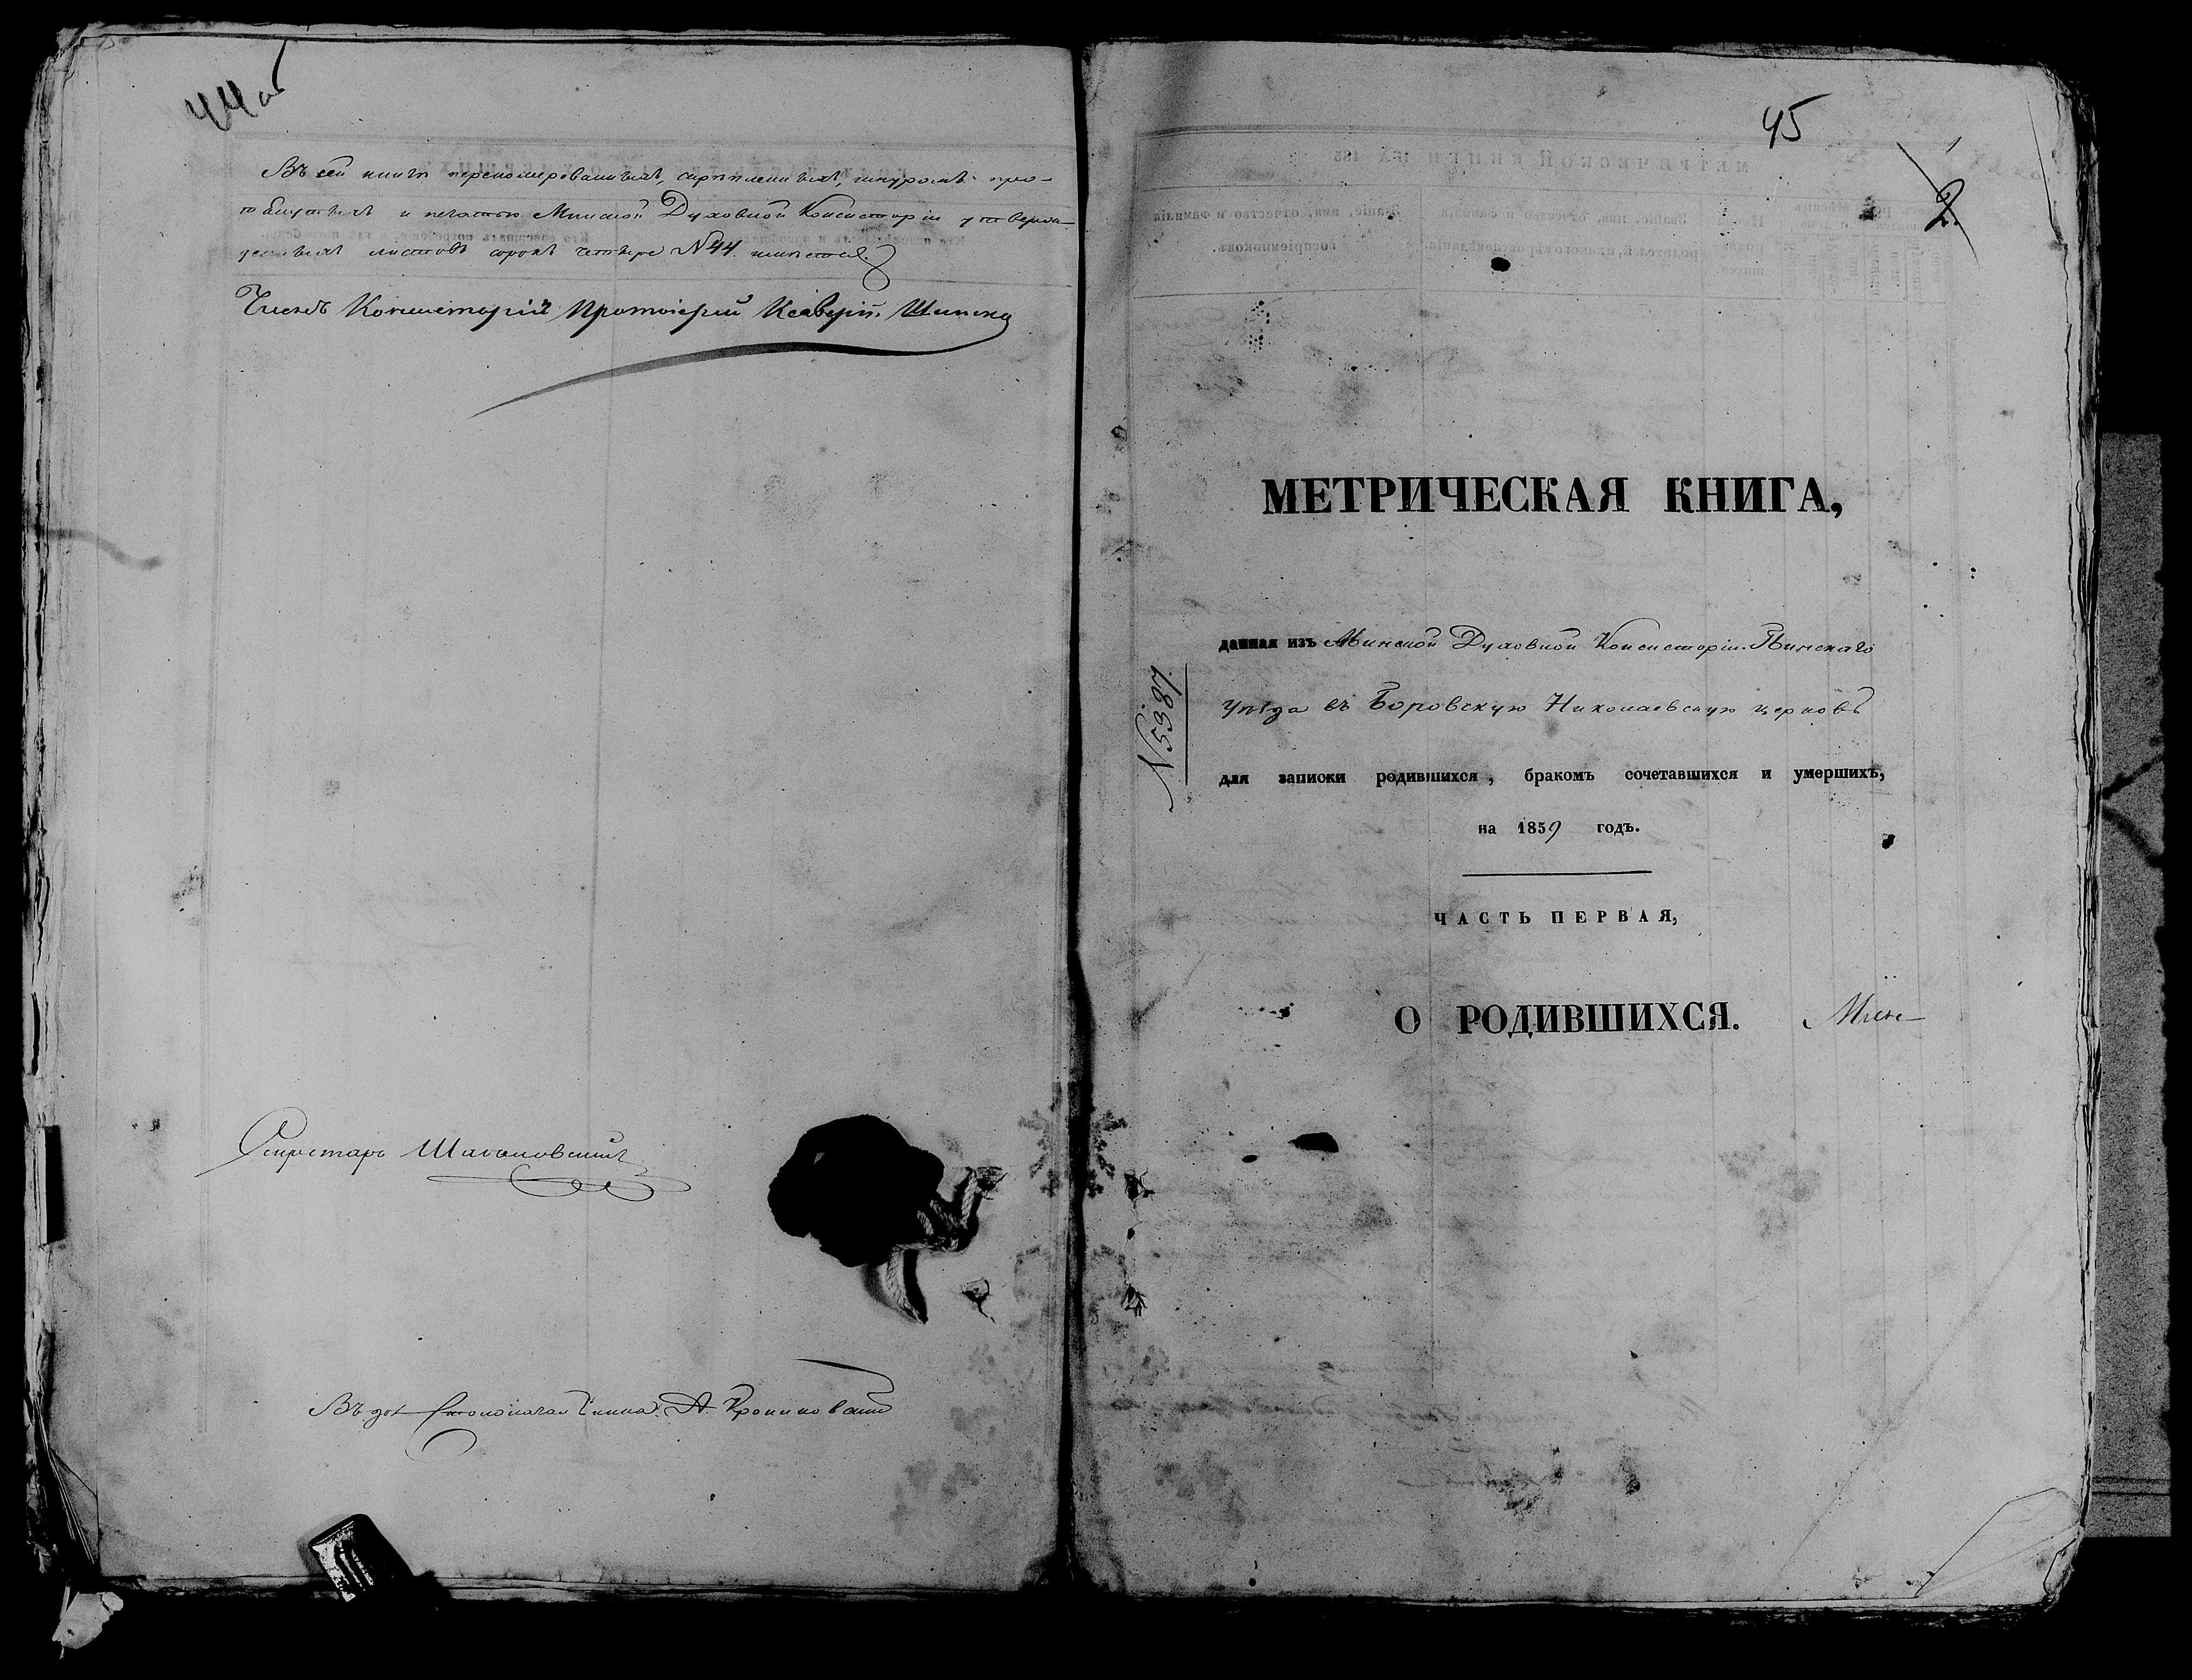 44 об
Въ сей книги перепомерованныхъ, скрепленныхъ, шнуромъ про-
тянутыхъ и печатью Минской Духовной Консисторіи утверж-
денныхъ листовъ сорокъ четыре N 44. имеется.
Членъ Консисторіи Протоіерей
Секретарь
Столоначальника А.
45
2.
МЕТРИЧЕСКАЯ КНИГА,
данная изъ Минской Духовной Консисторіи Пинскаго
уѣзда въ Боровскую Николаевскую церковь
N 5387.
для записки родившихся, бракомъ сочетавшихся и умершихъ,
на 1859 годъ.
ЧАСТЬ ПЕРВАЯ,
О РОДИВШИХСЯ.